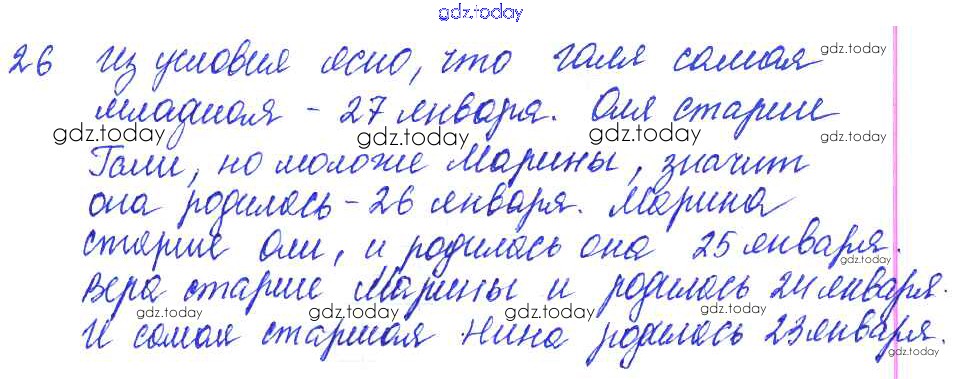 gdz.today
26 Из условия ясно, что Галя самая
gdz.today
младшая - 27 января. Оля старше
gdz.today gdz.today gdz.today
Гали, но моложе Марины, значит
она родилась - 26 января. Марина
старше Оли, и родилась она 25 января.
gdz.today
Вера старше Марины и родилась 24 января.
gdz.today gdz.today
И самая старшая Нина родилась 23 января.
gdz.today